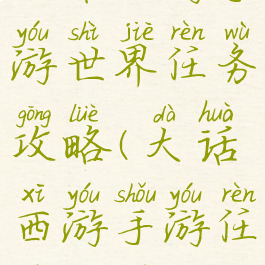 yóu shì jiè rèn wù
游世界任务
gōng lüè dà huà
攻略(大话
xī yóu shǒu yóu rèn
西游手游任